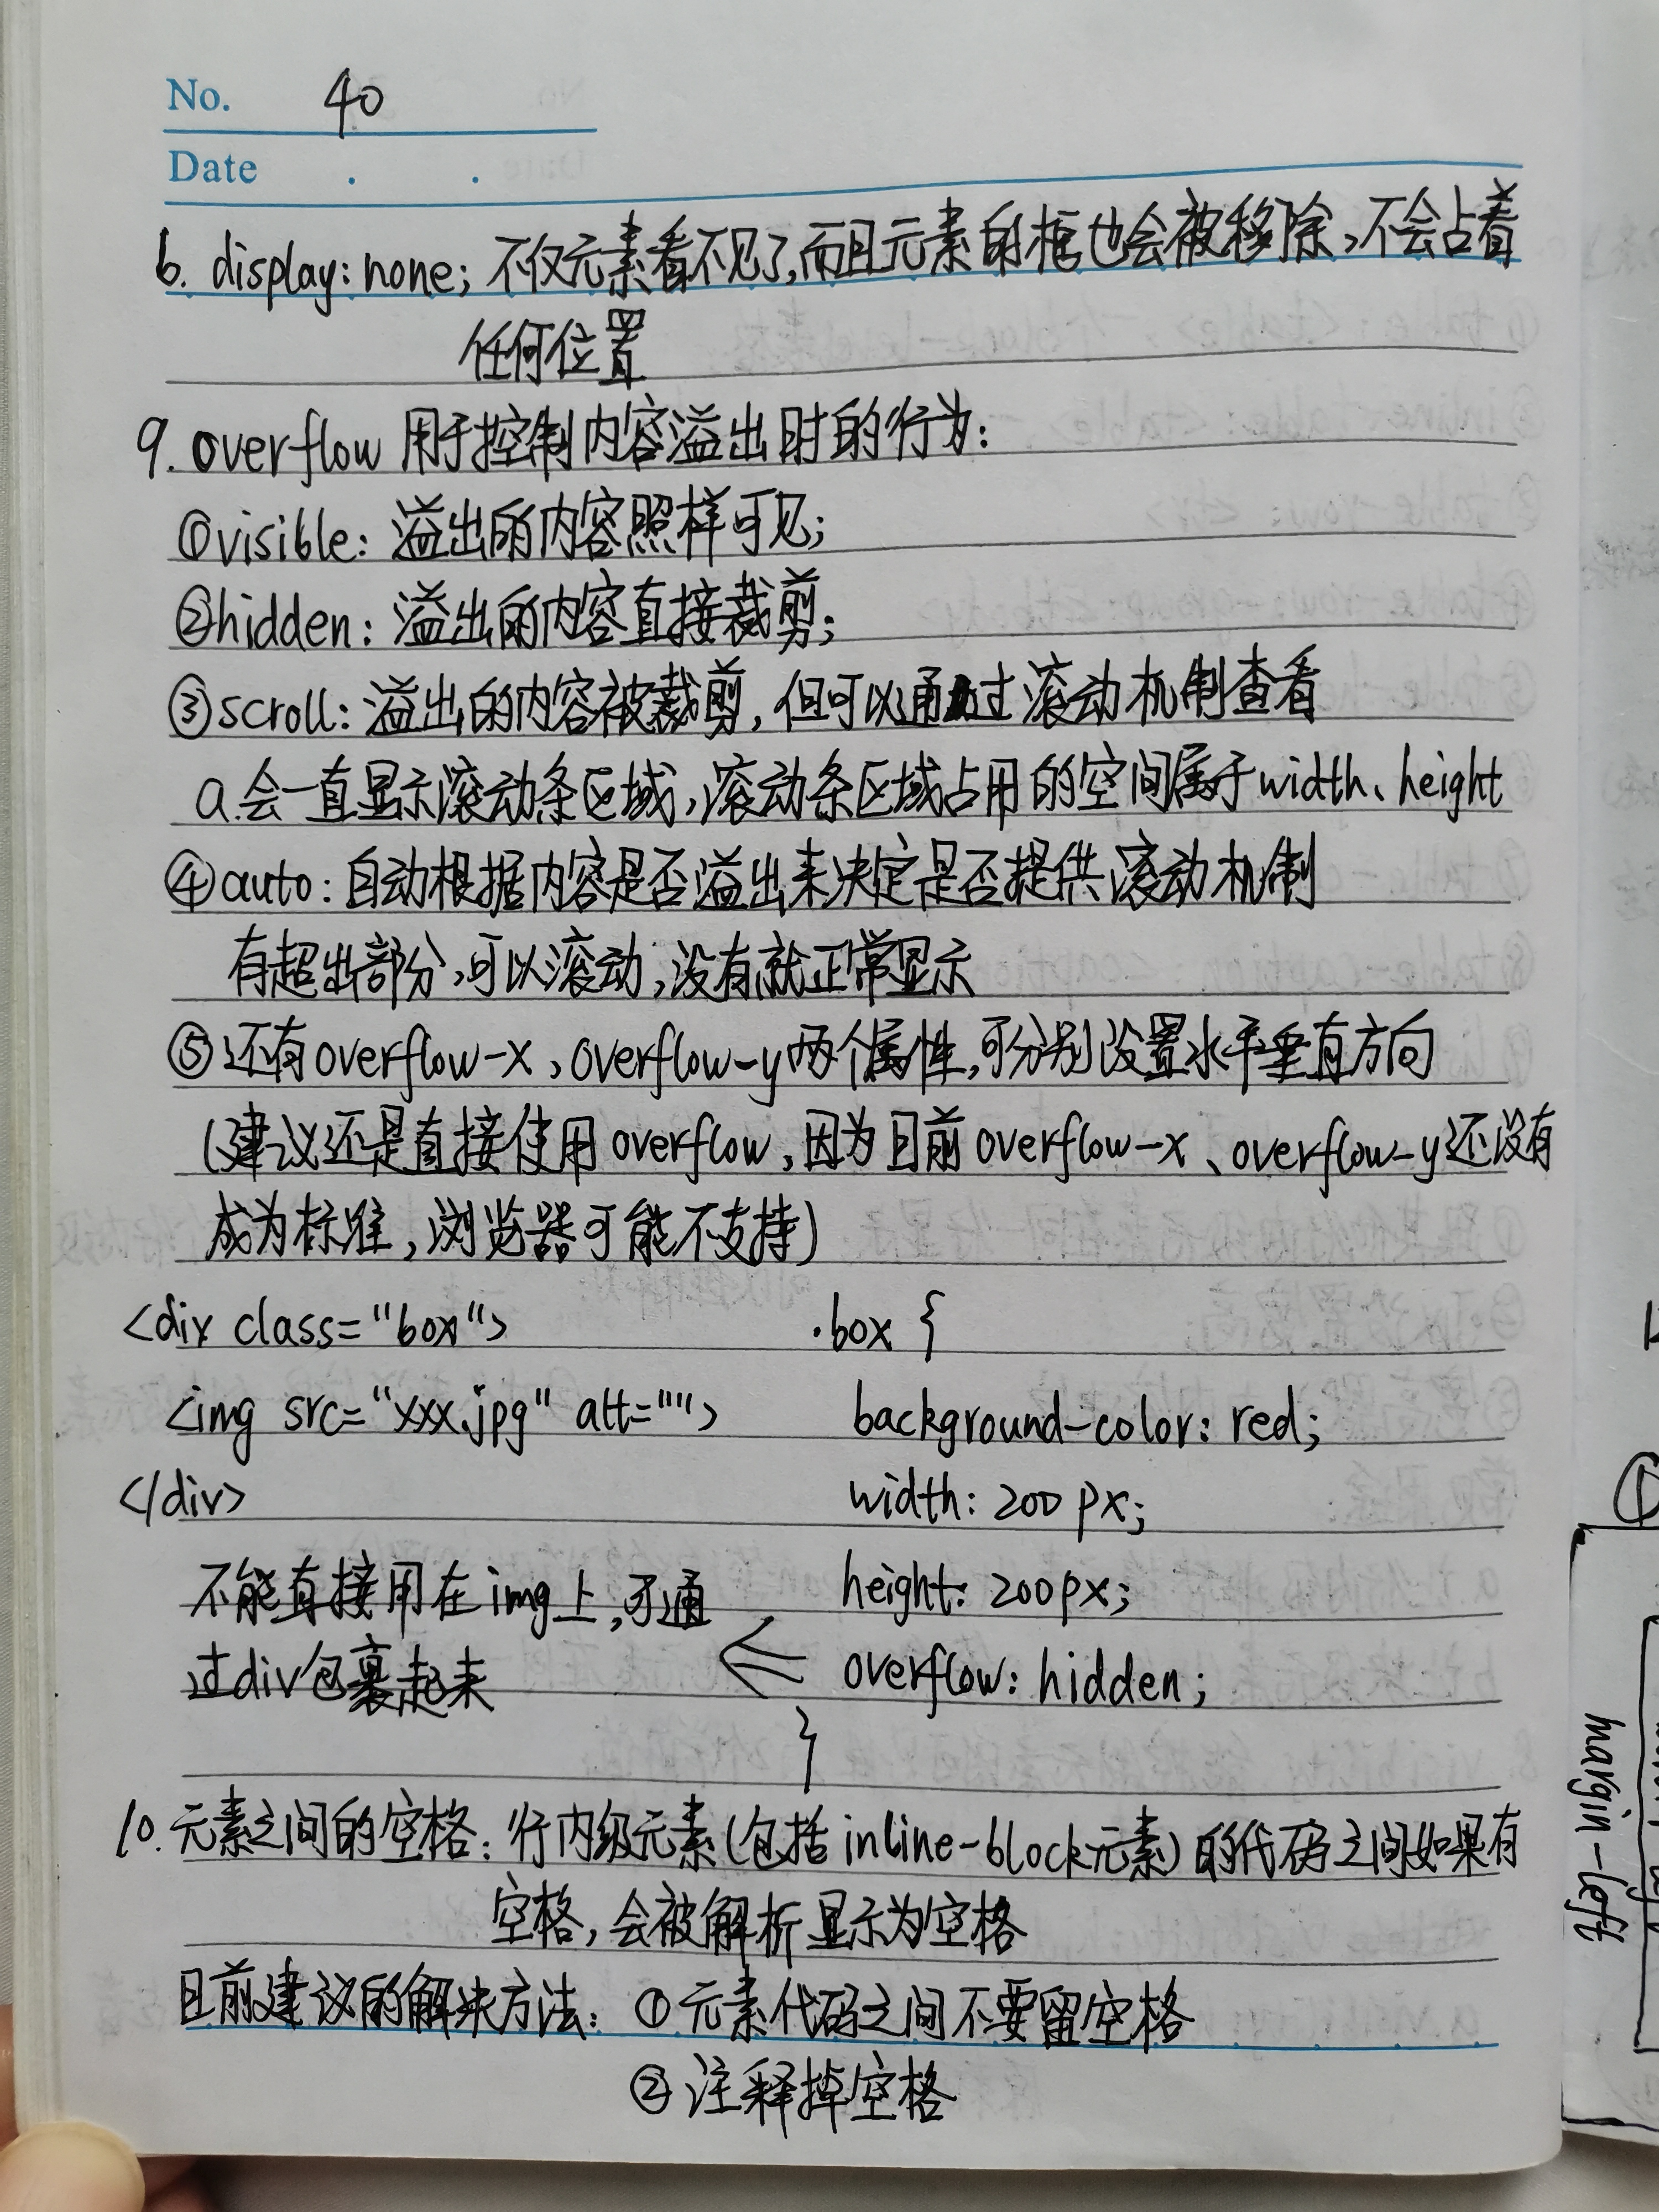 No. 40
Date . .
b. display: none; 不仅元素看不见了,而且元素的框也会被移除,不会占着
任何位置
9. overflow 用于控制内容溢出时的行为:
①visible: 溢出的内容照样可见;
②hidden: 溢出的内容直接裁剪;
③scroll: 溢出的内容被裁剪, 但可以通过滚动机制查看
a.会一直显示滚动条区域,滚动条区域占用的空间属于width、height
④auto: 自动根据内容是否溢出来决定是否提供滚动机制
有超出部分,可以滚动,没有就正常显示
⑤还有overflow-x、overflow-y两个属性,可分别设置水平垂直方向
(建议还是直接使用overflow,因为目前overflow-x、overflow-y还没有
成为标准,浏览器可能不支持)
<div class="box"> .box {
<img src="xxx.jpg" alt=""> background-color: red;
</div> width: 200px;
不能直接用在img上,可通 height: 200px;
过div包裹起来 ← overflow: hidden;
}
10. 元素之间的空格: 行内级元素(包括inline-block元素)的代码之间如果有
空格, 会被解析显示为空格
目前建议的解决方法: ①元素代码之间不要留空格
②注释掉空格
①
margin-left